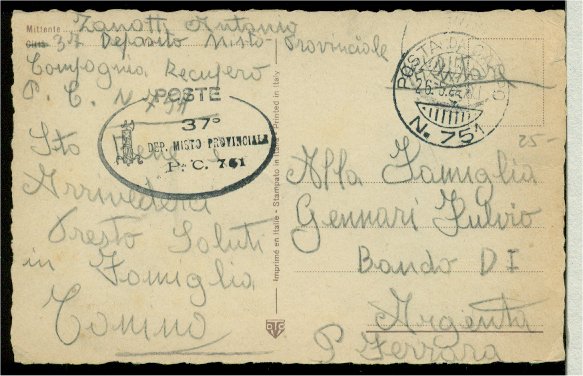 Mittente Zanotti Antonio
Città 37 Deposito Misto Provinciale
Compagnia Recupero
P. C. N 7
POSTE
37°
DEP. MISTO PROVINCIALE
P. C. 761
Sto Bene
Arrivederci
Presto Saluti
in Famiglia
Tonino
Imprimé en Italie - Stampato in Italia - Printed in Italy
POSTA DA CAMPO
N. 751
25-
Alla Famiglia
Gennari Fulvio
Bando DI
Argenta
P Ferrara